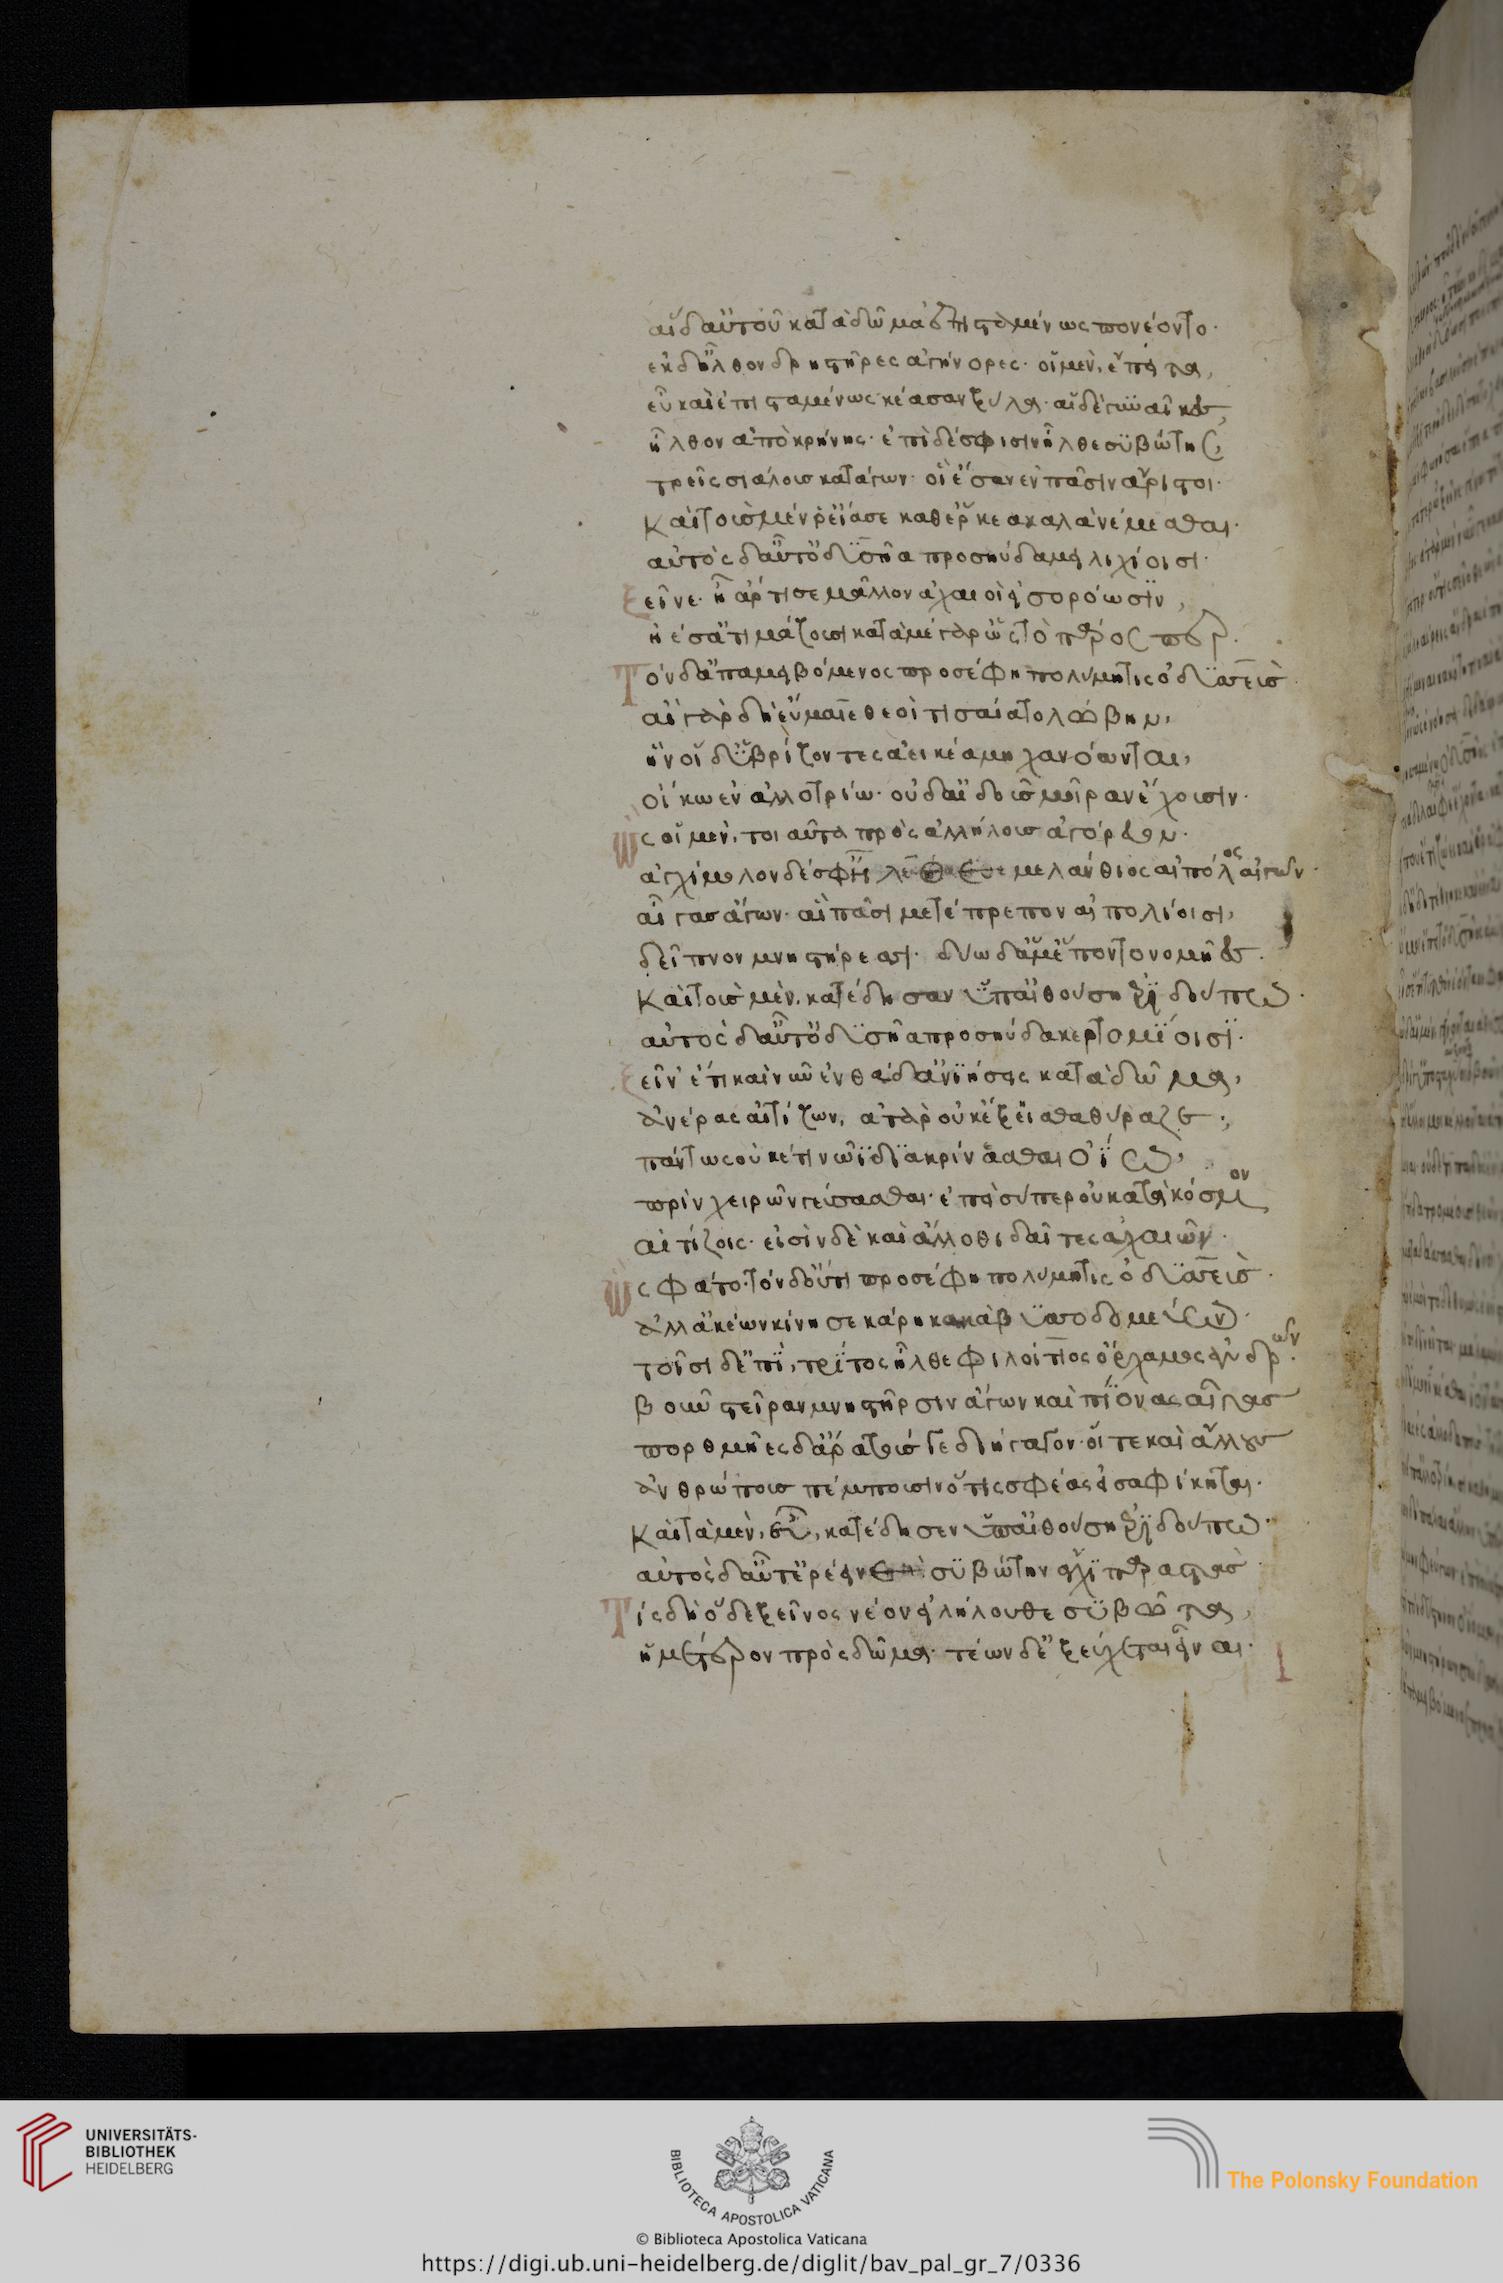 αἵδ' αὐτοῦ κατὰ δώματ' ἐπισταμένως πονέοντο·
ἐκ δ' ἦλθον δρηστῆρες ἀγήνορες· οἱ μὲν, ἔπειτα,
εὖ καὶ ἐπισταμένως κέασαν ξύλα· αἱ δὲ γυναῖκες,
ἦλθον ἀπὸ κρήνης· ἐπὶ δέ σφισιν ἦλθε συβώτης,
τρεῖς σιάλους κατάγων· οἳ ἔσαν ἐν πᾶσιν ἄριστοι·
Καὶ τοὺς μέν ῥ' εἴασε καθ' ἕρκεα καλὰ νέμεσθαι·
αὐτὸς δ' αὖτ' ὀδυσῆα προσηύδα μειλιχίοισι·
ξεῖνε· ἦ ἄρ τί σε μᾶλλον ἀχαιοὶ εἰσορόωσιν,
ἠέ σ' ἀτιμάζουσι κατὰ μέγαρ' ὡς τὸ πάρος περ·
Τὸν δ' ἀπαμειβόμενος προσέφη πολύμητις ὀδυσσεύς·
αἲ γὰρ δὴ εὔμαιε θεοὶ τισαίατο λώβην,
ἣν οἵδ' ὑβρίζοντες ἀεικέα μηχανόωνται,
οἴκω ἐν ἀλλοτρίω· οὐδ' αἰδοῦς μοῖραν ἔχουσιν·
Ὣς οἱ μὲν, τοιαῦτα πρὸς ἀλλήλους ἀγόρευον·
ἀγχίμολον δέ σφ' ἦλθε μελάνθιος αἰπόλος αἰγῶν·
αἶγας ἄγων· αἳ πᾶσι μετέπρεπον αἰπολίοισι,
δεῖπνον μνηστήρεσσι· δύω δ' ἅμ' ἕποντο νομῆες·
Καὶ τοὺς μὲν, κατέδησαν ὑπ' αἰθούση ἐριδούπω·
αὐτὸς δ' αὖτ' ὀδυσῆα προσηύδα κερτομίοισι·
ξεῖν' ἔτι καὶ νῦν ἐνθάδ' ἀνιήσεις κατὰ δῶμα,
ἀνέρας αἰτίζων, ἀτὰρ οὐκ ἔξεισθα θύραζε·,
πάντως οὐκέτι νῶϊ διακρινέεσθαι ὀΐω,
πρὶν χειρῶν γεύσασθαι· ἐπεὶ σύ περ οὐ κατὰ κόσμον
αἰτίζεις· εἰσὶν δὲ καὶ ἄλλοθι δαῖτες ἀχαιῶν·
Ὣς φάτο· τὸν δ' οὔτι προσέφη πολύμητις ὀδυσσεύς·
ἀλλ' ἀκέων κίνησε κάρη κακὰ βυσσοδομεύων·
τοῖσι δ' ἐπὶ, τρίτος ἦλθε φιλοίτιος ὄρχαμος ἀνδρῶν·
βοῦν στεῖραν μνηστῆρσιν ἄγων καὶ πίονας αἶγας
πορθμῆες δ' ἄρα τούς γε διήγαγον· οἵ τε καὶ ἄλλους
ἀνθρώπους πέμπουσιν ὅτις σφέας εἰσαφίκηται·
Καὶ τὰ μὲν, εὖ, κατέδησεν ὑπ' αἰθούση ἐριδούπω·
αὐτὸς δ' αὖτ' ἐρέεινε συβώτην ἄγχι παραστὰς·
Τίς δὴ ὅδε ξεῖνος νέον εἰλήλουθε συβῶτα,
ἡμέτερον πρὸς δῶμα· τέων δ' ἐξεύχεται εἶναι·
UNIVERSITÄTS-
BIBLIOTHEK
HEIDELBERG
BIBLIOTECA APOSTOLICA VATICANA
The Polonsky Foundation
© Biblioteca Apostolica Vaticana
https://digi.ub.uni-heidelberg.de/diglit/bav_pal_gr_7/0336